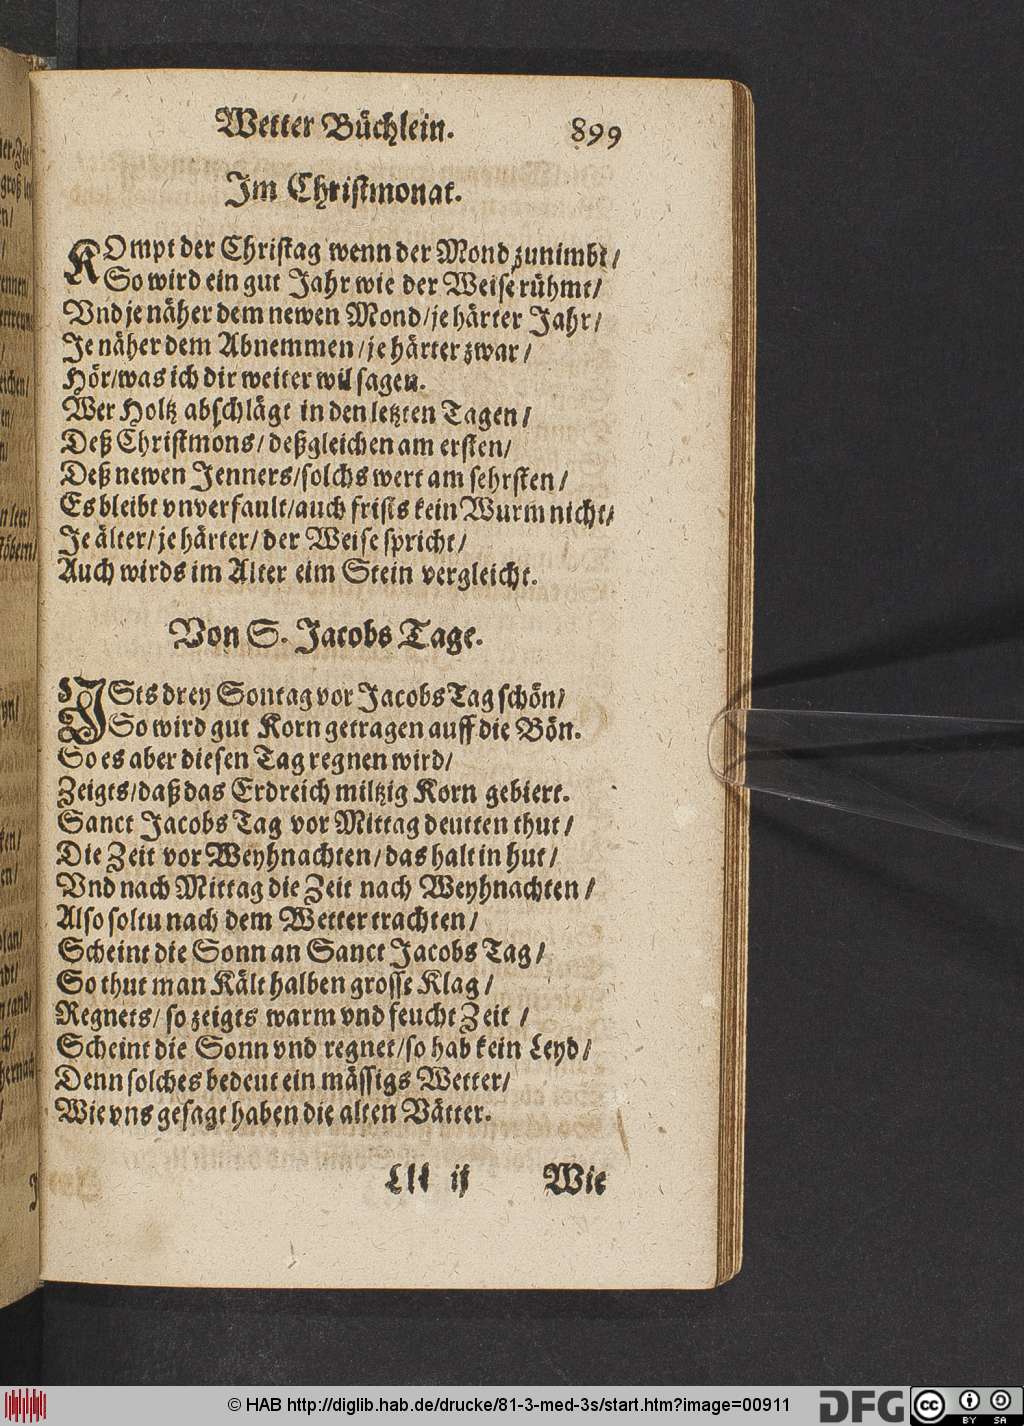 Wetter Büchlein. 899
Im Christmonat.
KOmpt der Christag wenn der Mond zunimbt/
So wird ein gut Jahr wie der Weise rühmt/
Vnd je näher dem newen Mond/je härter Jahr/
Je näher dem Abnemmen/je härter zwar/
Hör/was ich dir weiter wil sagen.
Wer Holtz abschlägt in den letzten Tagen/
Deß Christmons/deßgleichen am ersten/
Deß newen Jenners/solchs wert am sehrsten/
Es bleibt vnverfault/auch frists kein Wurm nicht/
Je älter/je härter/der Weise spricht/
Auch wirds im Alter eim Stein vergleicht.
Von S. Jacobs Tage.
ISts drey Sontag vor Jacobs Tag schön/
So wird gut Korn getragen auff die Bön.
So es aber diesen Tag regnen wird/
Zeigts/daß das Erdreich miltzig Korn gebiert.
Sanct Jacobs Tag vor Mittag deutten thut/
Die Zeit vor Weyhnachten/das halt in hut/
Vnd nach Mittag die Zeit nach Weyhnachten/
Also soltu nach dem Wetter trachten/
Scheint die Sonn an Sanct Jacobs Tag/
So thut man Kält halben grosse Klag/
Regnets/so zeigts warm vnd feucht Zeit/
Scheint die Sonn vnd regnet/so hab kein Leyd/
Denn solches bedeut ein mässigs Wetter/
Wie vns gesagt haben die alten Vätter.
Lll ij Wie
© HAB http://diglib.hab.de/drucke/81-3-med-3s/start.htm?image=00911
DFG
cc BY SA